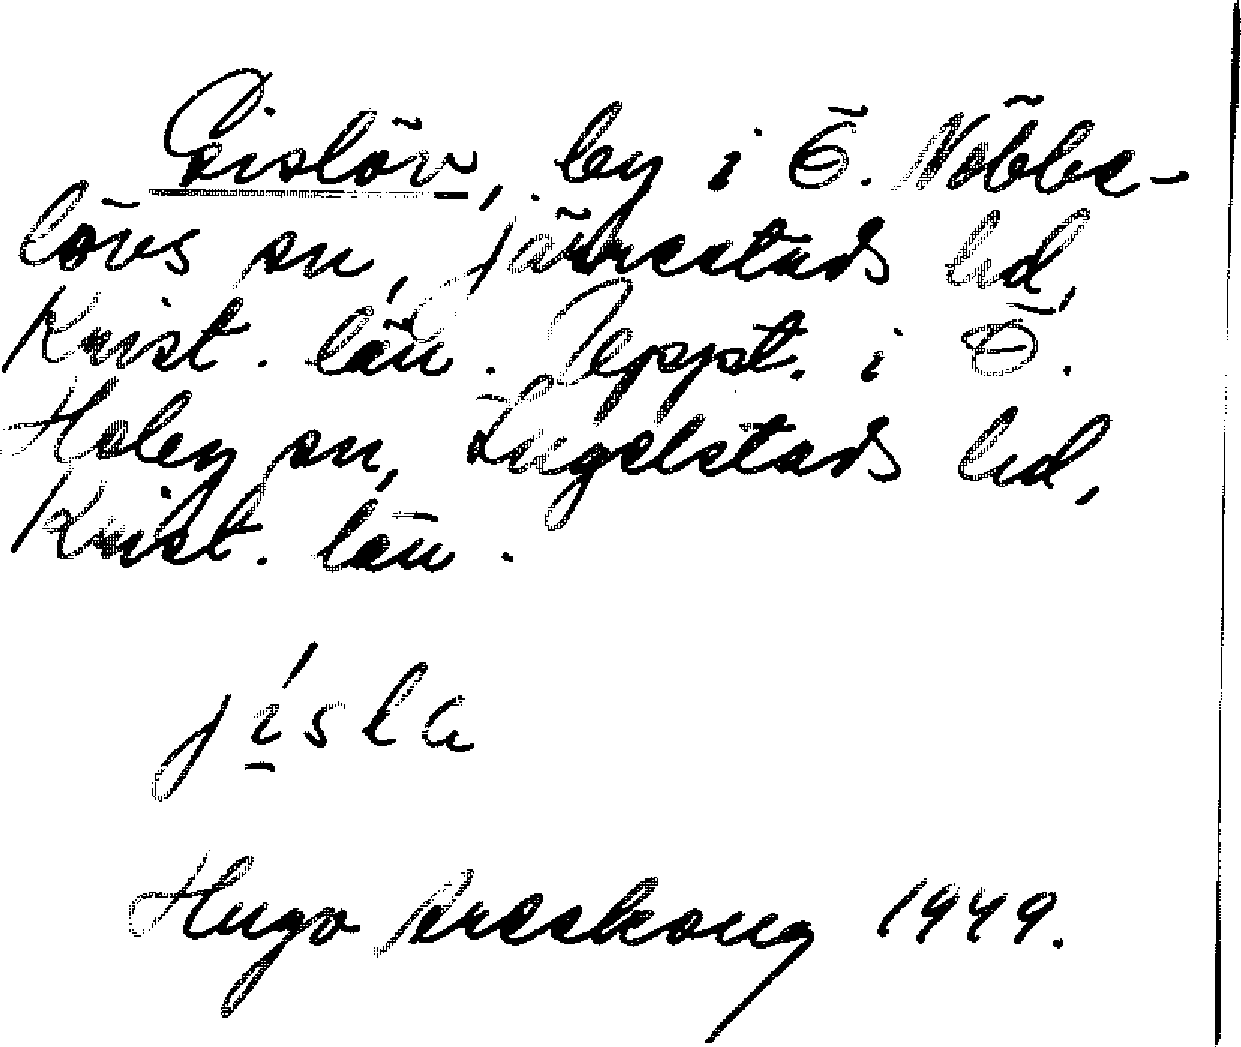 Gislöv, by i Ö. Nöbbe-
lövs sn, Järrestads hd,
Krist. län. Uppt. i Ö.
Hoby sn, Ingelstads hd,
Krist. län.
Hugo Areskoug 1949.